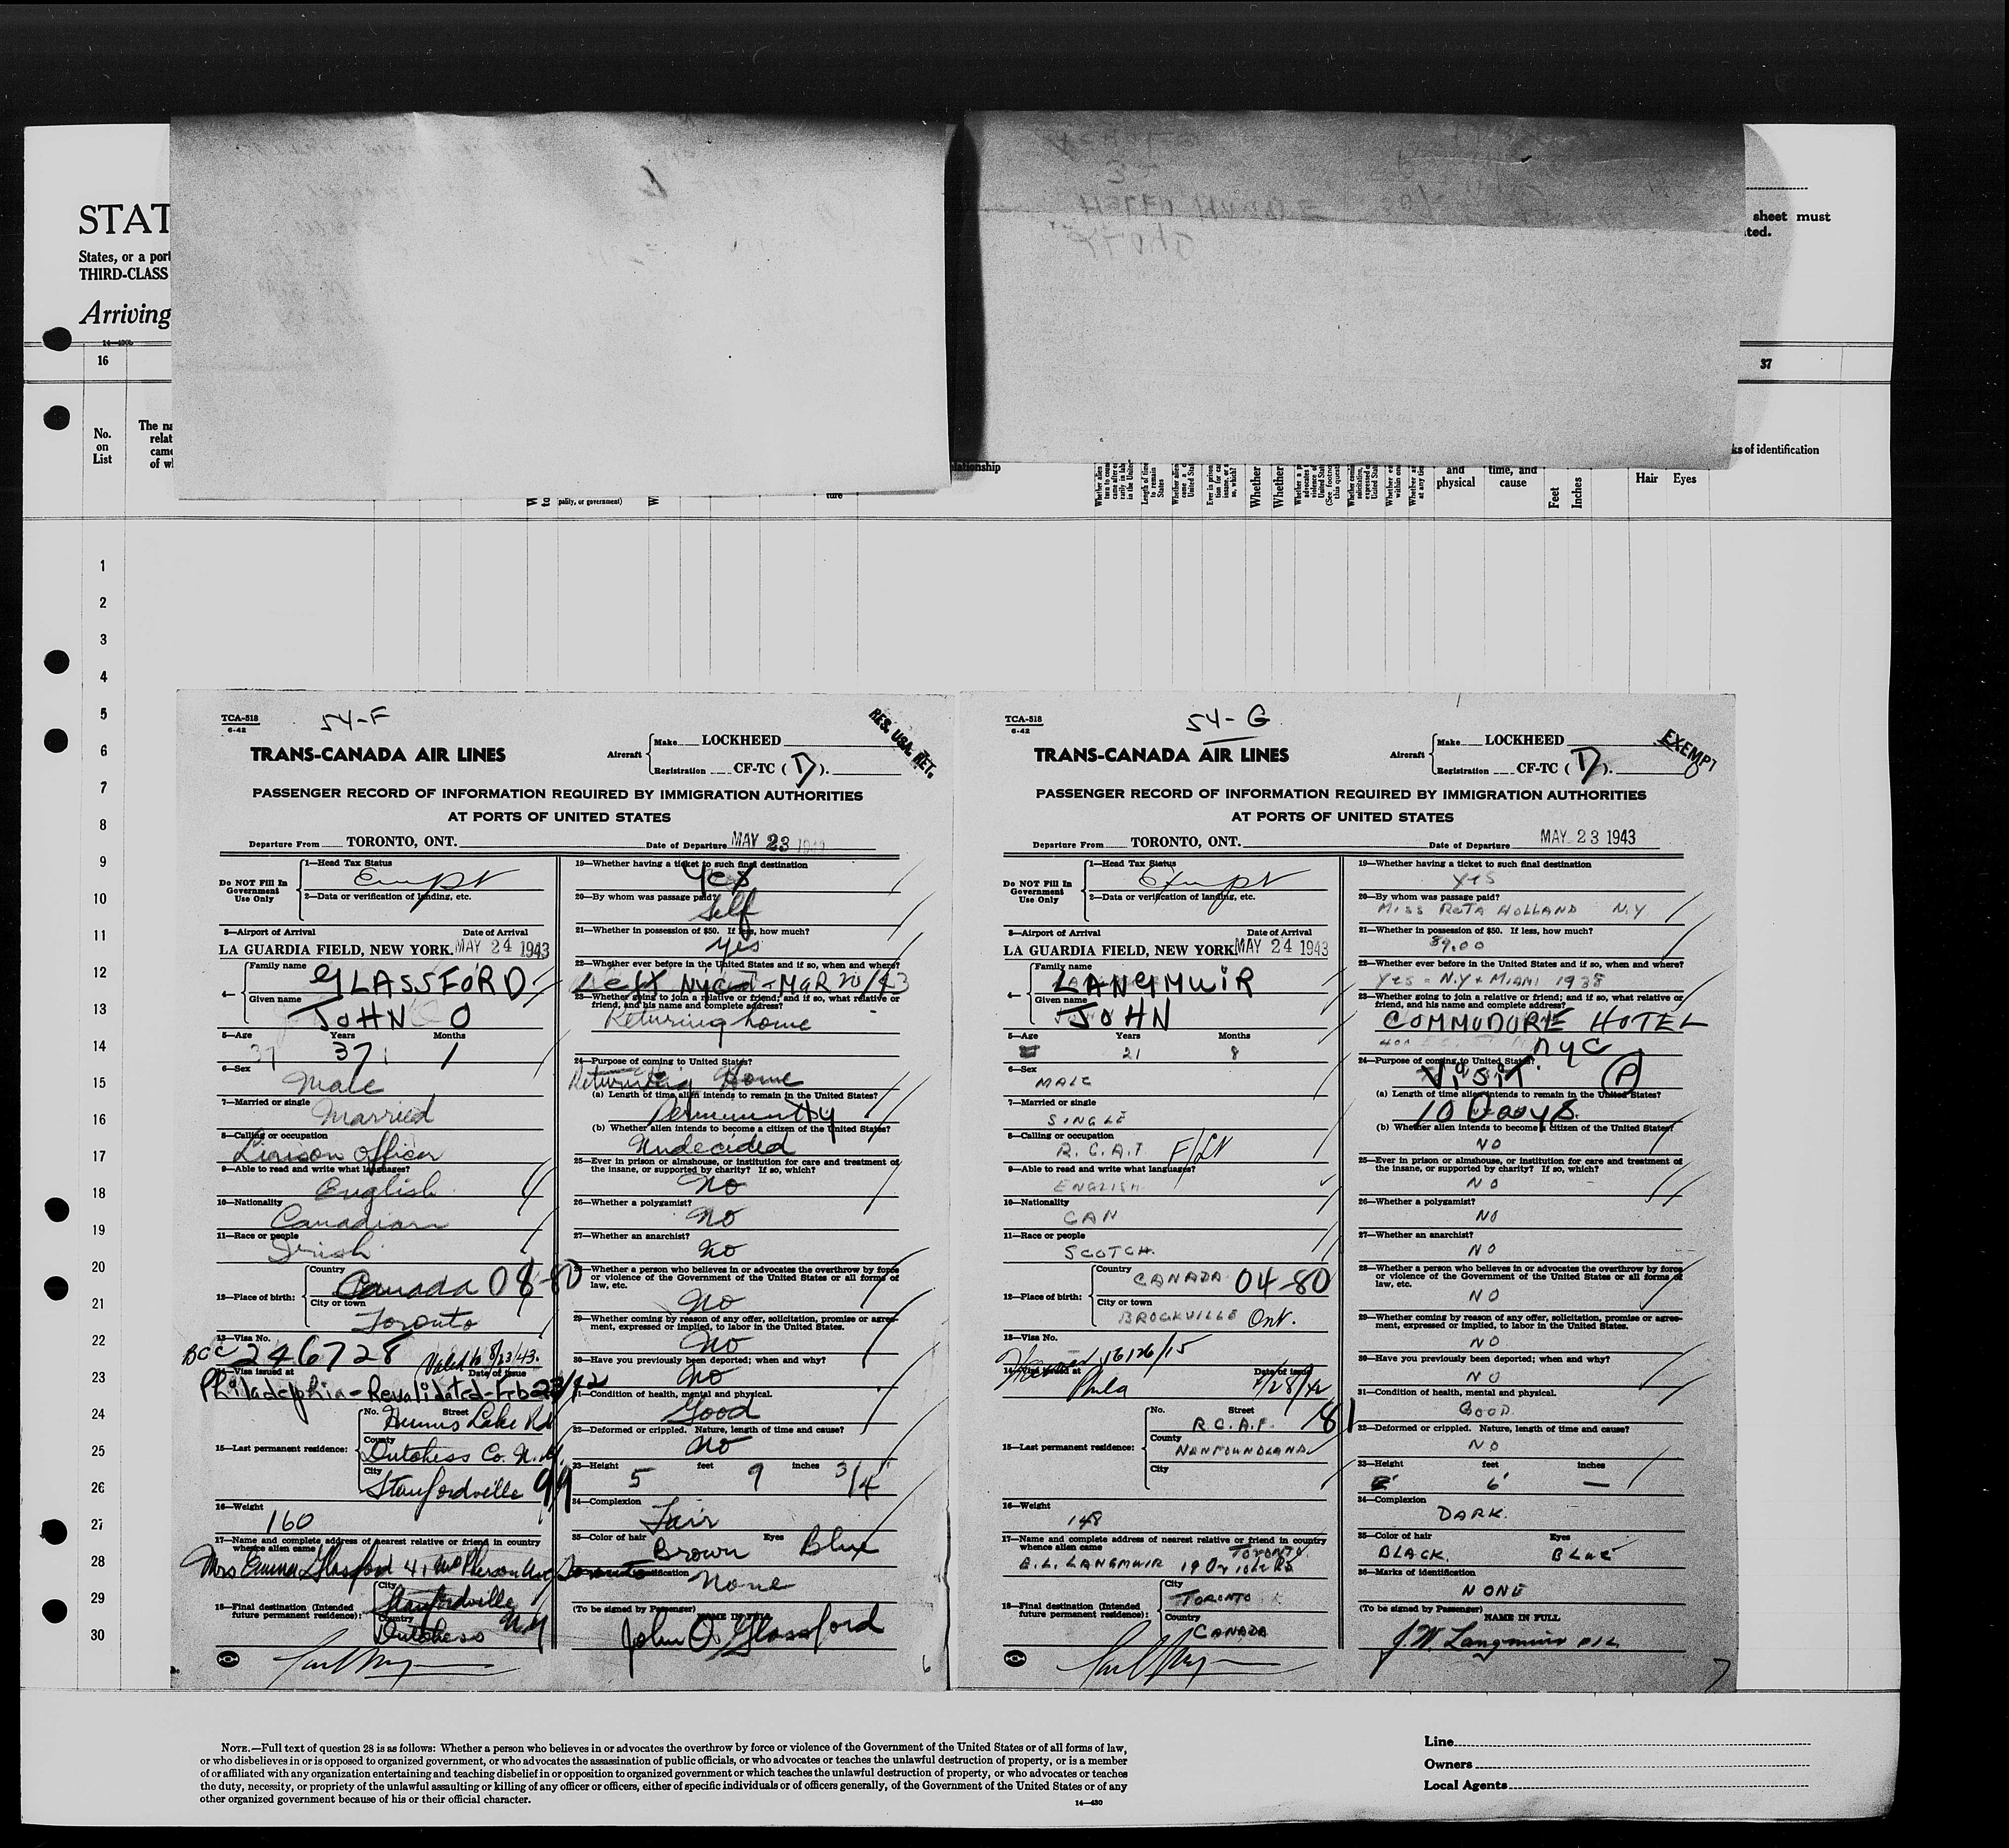 STAT
States, or a port
THIRD-CLASS
Arriving
sheet must
ted.
16
37
No.
on
List
The na
relat
came
of wh
pality, or government)
ture
lationship
and
physical
time, and
cause
Feet
Inches
Hair Eyes
ks of identification
1
2
3
4
5
6
7
8
9
10
11
12
13
14
15
16
17
18
19
20
21
22
23
24
25
26
27
28
29
30
TCA-518
6-42
54-F
RES. USA. RET.
TRANS-CANADA AIR LINES
Aircraft
Make LOCKHEED
Registration CF-TC (D).
PASSENGER RECORD OF INFORMATION REQUIRED BY IMMIGRATION AUTHORITIES
AT PORTS OF UNITED STATES
Departure From TORONTO, ONT. Date of Departure MAY 23 1943
Do NOT Fill In Government Use Only
1—Head Tax Status
Exempt
2—Data or verification of landing, etc.
3—Airport of Arrival Date of Arrival
LA GUARDIA FIELD, NEW YORK. MAY 24 1943
4— Family name GLASSFORD
Given name JOHN O
5—Age Years Months
37 37 1
6—Sex Male
7—Married or single Married
8—Calling or occupation
Liaison Officer
9—Able to read and write what languages?
English
10—Nationality
Canadian
11—Race or people
Irish
12—Place of birth: Country Canada 08-80
City or town Toronto
13—Visa No.
BCC 246728 Valid to 8/23/43.
14—Visa issued at Date of issue
Philadelphia-Revalidated-Feb 23/42
15—Last permanent residence: No. Street Hunns Lake Rd
County Dutchess Co. N.Y.
City Stanfordville 99
16—Weight
160
17—Name and complete address of nearest relative or friend in country
whence alien came
Mrs Emma Glassford 41 McPherson Ave Toronto
18—Final destination (Intended
future permanent residence): City Stanfordville
Country Dutchess N.Y
19—Whether having a ticket to such final destination
Yes
20—By whom was passage paid?
Self
21—Whether in possession of $50. If less, how much?
yes
22—Whether ever before in the United States and if so, when and where?
Left NYC - MAR 20/43
23—Whether going to join a relative or friend; and if so, what relative or
friend, and his name and complete address?
Returing home
24—Purpose of coming to United States?
Returning Home
(a) Length of time alien intends to remain in the United States?
Permanently
(b) Whether alien intends to become a citizen of the United States?
Undecided
25—Ever in prison or almshouse, or institution for care and treatment of
the insane, or supported by charity? If so, which?
No
26—Whether a polygamist?
No
27—Whether an anarchist?
No
28—Whether a person who believes in or advocates the overthrow by force
or violence of the Government of the United States or all forms of
law, etc.
No
29—Whether coming by reason of any offer, solicitation, promise or agree-
ment, expressed or implied, to labor in the United States.
No
30—Have you previously been deported; when and why?
No
31—Condition of health, mental and physical.
Good
32—Deformed or crippled. Nature, length of time and cause?
No
33—Height 5 feet 9 inches 3/4
34—Complexion
Fair
35—Color of hair Brown Eyes Blue
None
(To be signed by Passenger) NAME IN FULL
John O. Glassford
6
TCA-518
6-42
54-G
EXEMPT
TRANS-CANADA AIR LINES
Aircraft
Make LOCKHEED
Registration CF-TC (D).
PASSENGER RECORD OF INFORMATION REQUIRED BY IMMIGRATION AUTHORITIES
AT PORTS OF UNITED STATES
Departure From TORONTO, ONT. Date of Departure MAY 23 1943
Do NOT Fill In Government Use Only
1—Head Tax Status
Exempt
2—Data or verification of landing, etc.
3—Airport of Arrival Date of Arrival
LA GUARDIA FIELD, NEW YORK MAY 24 1943
4— Family name LANGMUIR
Given name JOHN
5—Age Years Months
21 8
6—Sex
MALE
7—Married or single
SINGLE
8—Calling or occupation
R.C.A.F F/Lt
9—Able to read and write what languages?
ENGLISH
10—Nationality
CAN
11—Race or people
SCOTCH.
12—Place of birth: Country CANADA 04-80
City or town BROCKVILLE Ont.
13—Visa No.
16126/15
14—Visa issued at Date of issue
Phila 4/28/42
15—Last permanent residence: No. Street R.C.A.F. 181
County NEWFOUNDLAND
City
16—Weight
148
17—Name and complete address of nearest relative or friend in country
whence alien came TORONTO.
E.L. LANGMUIR 19 Oriole Rd
18—Final destination (Intended
future permanent residence): City TORONTO
Country CANADA
19—Whether having a ticket to such final destination
YES
20—By whom was passage paid?
MISS RETA HOLLAND N.Y
21—Whether in possession of $50. If less, how much?
39.00
22—Whether ever before in the United States and if so, when and where?
Yes - N.Y + MIAMI 1938
23—Whether going to join a relative or friend; and if so, what relative or
friend, and his name and complete address?
COMMODORE HOTEL
NYC
24—Purpose of coming to United States?
VISIT. P
(a) Length of time alien intends to remain in the United States?
10 Days.
(b) Whether alien intends to become a citizen of the United States?
NO
25—Ever in prison or almshouse, or institution for care and treatment of
the insane, or supported by charity? If so, which?
NO
26—Whether a polygamist?
NO
27—Whether an anarchist?
NO
28—Whether a person who believes in or advocates the overthrow by force
or violence of the Government of the United States or all forms of
law, etc.
NO
29—Whether coming by reason of any offer, solicitation, promise or agree-
ment, expressed or implied, to labor in the United States.
NO
30—Have you previously been deported; when and why?
NO
31—Condition of health, mental and physical.
GOOD
32—Deformed or crippled. Nature, length of time and cause?
NO
33—Height feet inches
6' —
34—Complexion
DARK.
35—Color of hair Eyes
BLACK. BLUE
36—Marks of identification
NONE
(To be signed by Passenger) NAME IN FULL
J.W. Langmuir
7
NOTE.—Full text of question 28 is as follows: Whether a person who believes in or advocates the overthrow by force or violence of the Government of the United States or of all forms of law,
or who disbelieves in or is opposed to organized government, or who advocates the assassination of public officials, or who advocates or teaches the unlawful destruction of property, or is a member
of or affiliated with any organization entertaining and teaching disbelief in or opposition to organized government or which teaches the unlawful destruction of property, or who advocates or teaches
the duty, necessity, or propriety of the unlawful assaulting or killing of any officer or officers, either of specific individuals or of officers generally, of the Government of the United States or of any
other organized government because of his or their official character.
14—430
Line
Owners
Local Agents